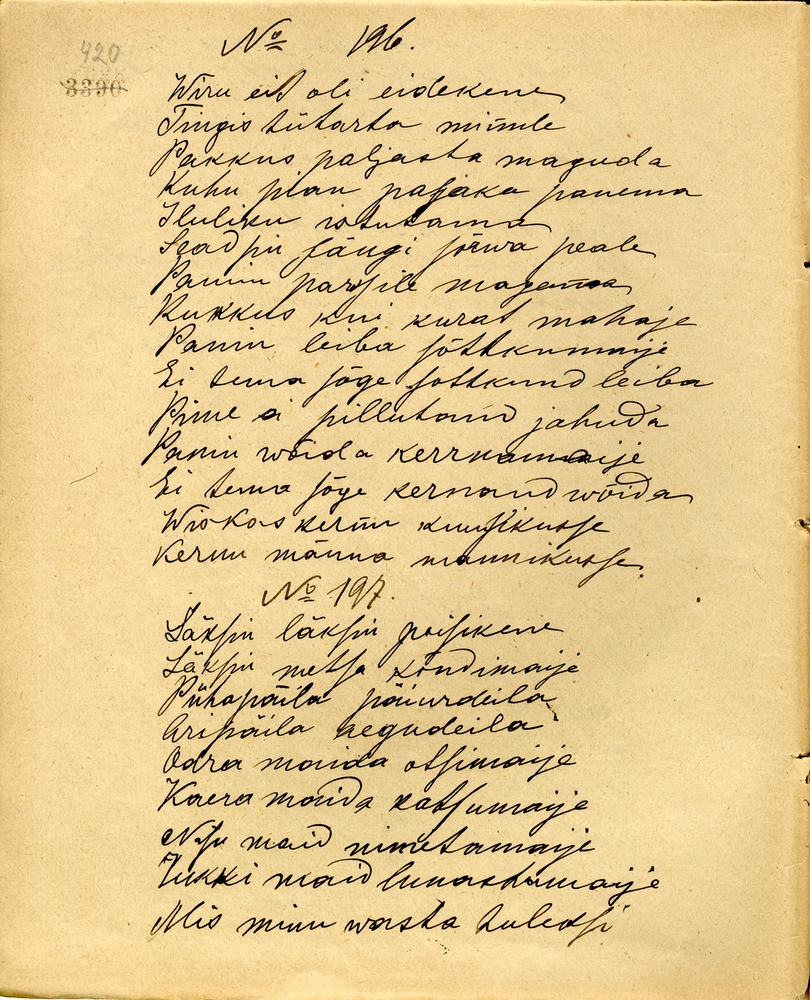 No 196.
420
3390
Wiru eit oli eidekene
Tingis tütarta minule
Pakkus paljasta maguda
Kuhu pian pajaka panema
Iluliku istutama
Sead sin sängi sõrwa peale
Panin parsile magama
Kukkus kui kurat mahaje
Panin leiba sõttkumaije
Ei tema jõge sottkund leiba
Pime ei pillutand jahuda
Panin wõida kerrnamaije
Ei tema jõge kernand wõida
Wiskas kernu kuusikusse
Kernu männa mannikusse.
No 197.
Läksin läksin poisikene
Läksin metsa kõndimaije
Pühapäila päiwrdeila
Aripäila aegudeila
Odra maida otsimaije
Kaera maida katsumaije
Nisu maid nimetamaije
Rukki maid lunastamaije
Mis minu wasta tuleksi